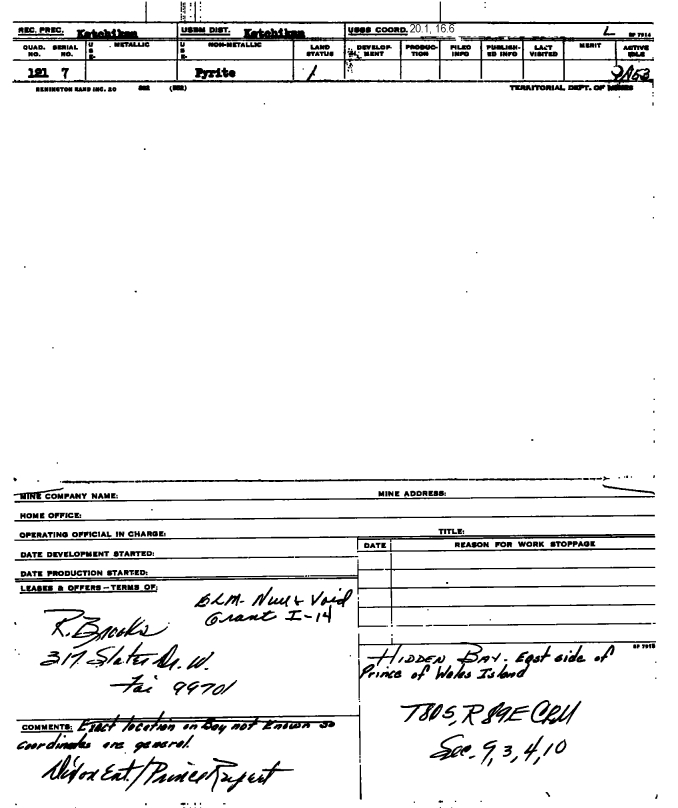 REC. PREC. Ketchikan USBM DIST. Ketchikan USGS COORD. 20.1, 16.6 L RP 7914
QUAD. NO. SERIAL NO. METALLIC NON-METALLIC LAND STATUS DEVELOP-MENT PRODUC-TION FILED INFO PUBLISH-ED INFO LAST VISITED MERIT ACTIVE IDLE
121 7 Pyrite 1
REMINGTON RAND INC. TERRITORIAL DEPT. OF MINES
MINE COMPANY NAME: MINE ADDRESS:
HOME OFFICE:
OPERATING OFFICIAL IN CHARGE: TITLE:
DATE DEVELOPMENT STARTED: DATE REASON FOR WORK STOPPAGE
DATE PRODUCTION STARTED:
LEASES & OFFERS – TERMS OF:
BLM - Null & Void
Grant I-14
R. Brooks
317 Slater Dr. W.
Fai 99701
HIDDEN BAY - East side of
Prince of Wales Island
T80S, R89E CRM
Sec. 9, 3, 4, 10
COMMENTS: Exact location on Bay not known so
coordinates are general.
Dixon Ent./Prince Rupert